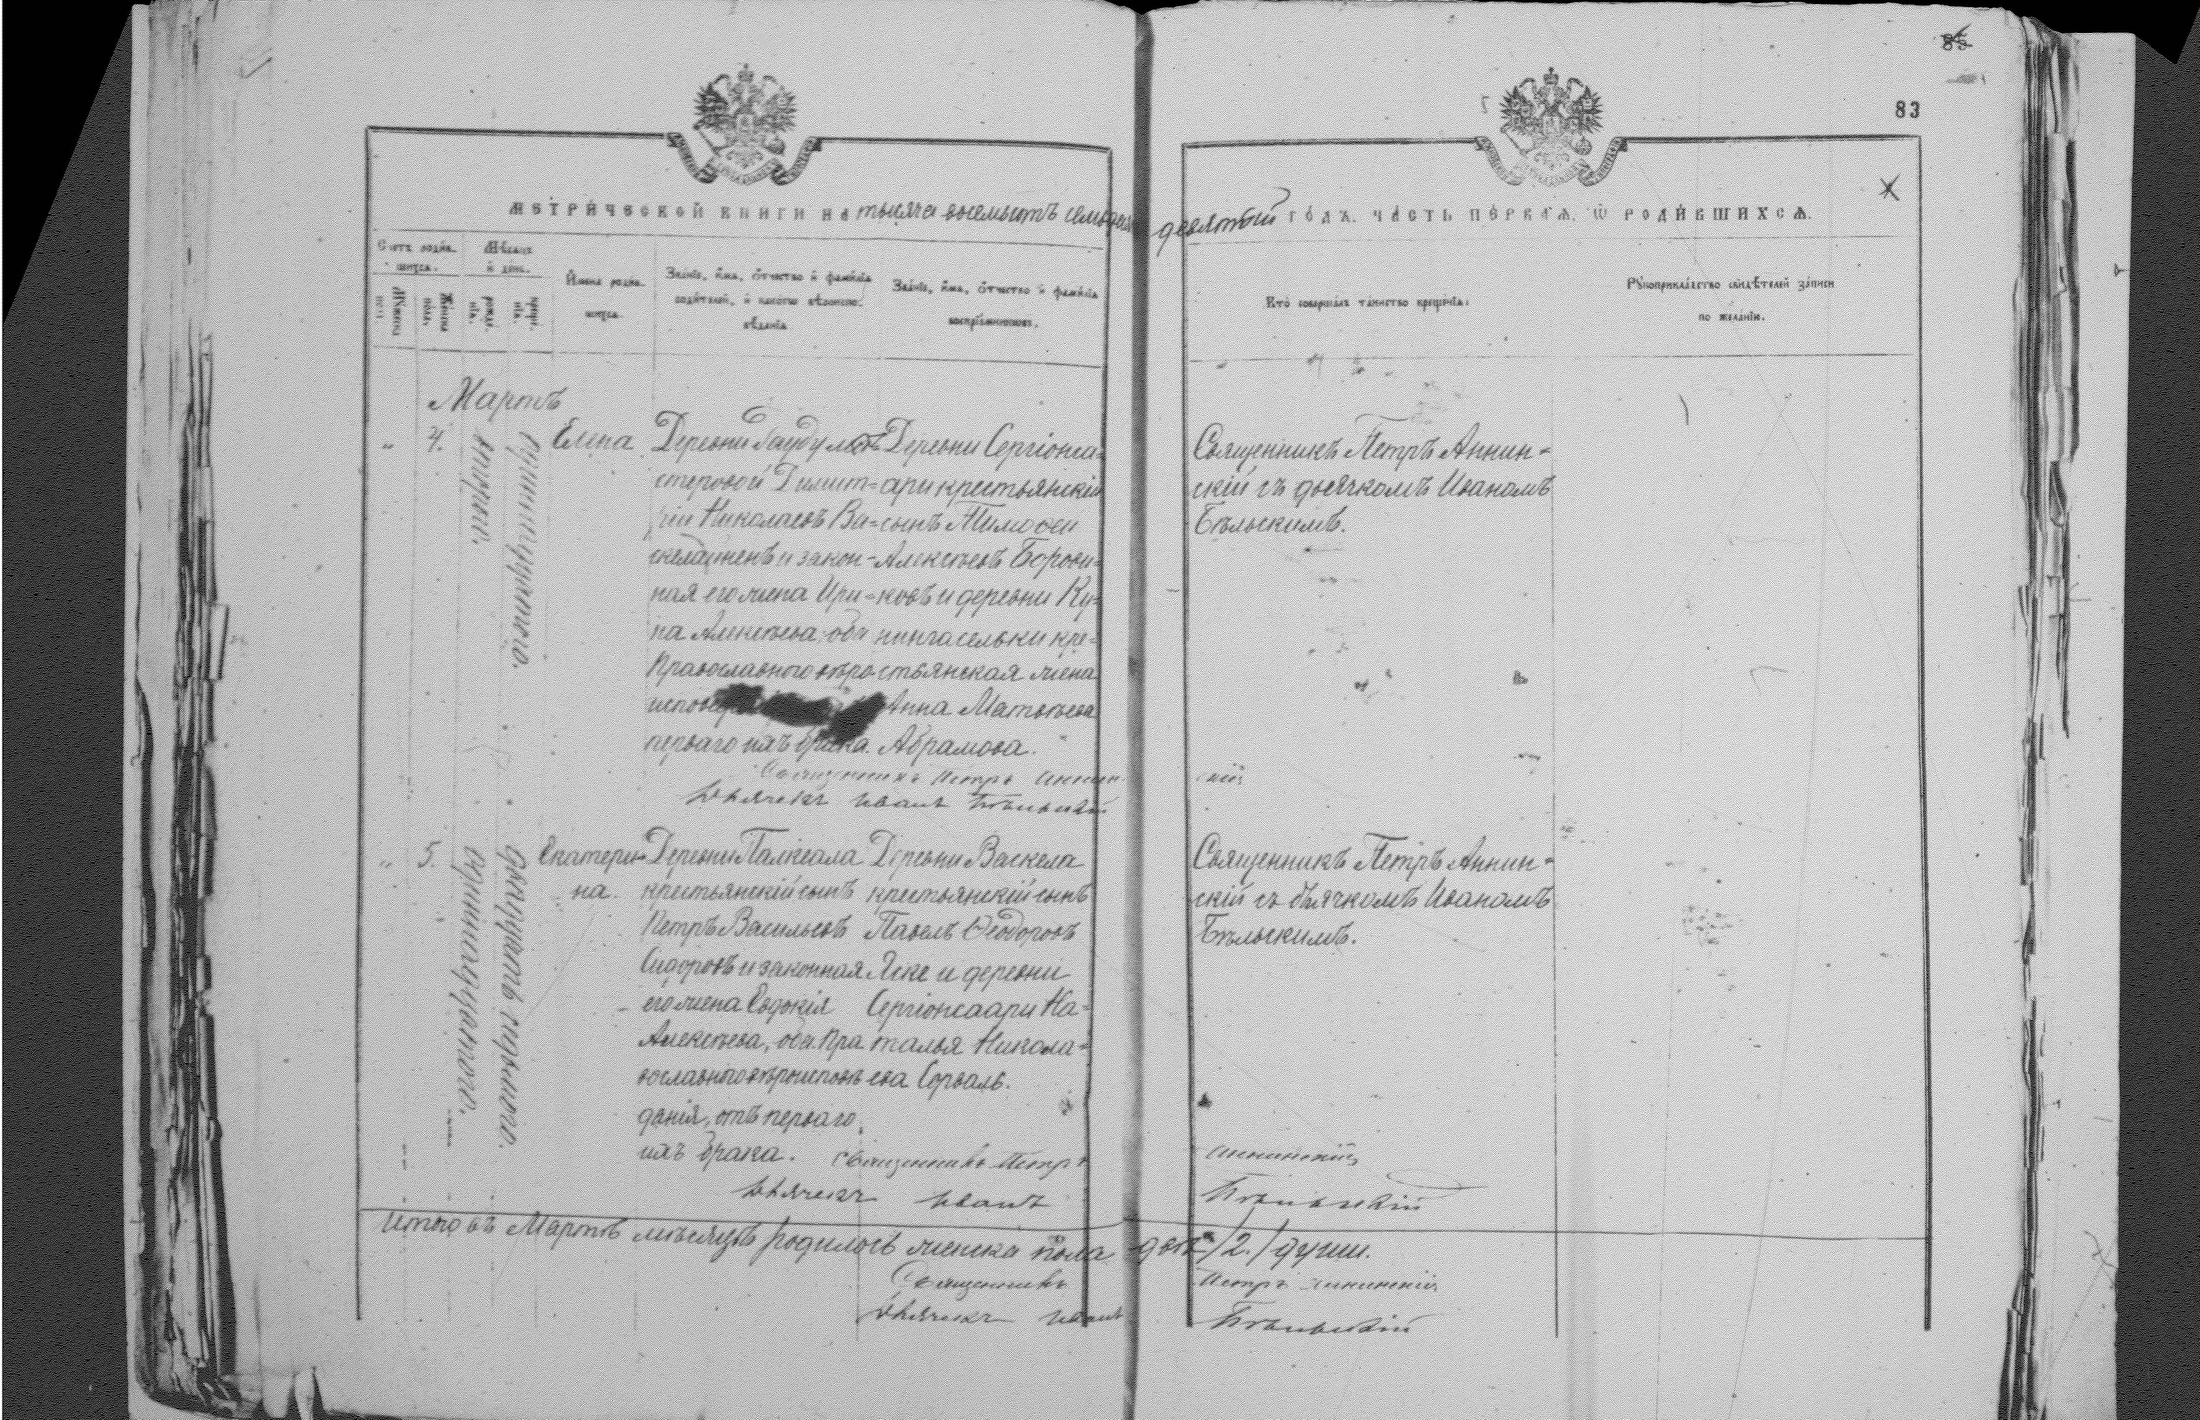 85
83
МЕТРИЧЕСКОЙ КНИГИ НА тысяча восемьсотъ семьдесятъ девятый ГОДЪ. ЧАСТЬ ПЕРВАЯ, Ѡ РОДИВШИХСЯ.
Счетъ родив-
шихся.
Мѣсяцъ
и день.
Мужеска
пола.
Женска
пола.
рожде-
нія.
креще-
нія.
Имена родив-
шихся.
Званіе, имя, отчество и фамилія
родителей, и какого вѣроиспо-
вѣданія
Званіе, имя, отчество и фамилія
воспріемниковъ.
Кто совершалъ таинство крещенія.
Рукоприкладство свидѣтелей записи
по желанію.
Мартъ
" 4.
втораго.
Елена
Деревни
стеровой
Николаевъ Ва-
и закон-
ная его жена Ири-
на Алексѣева, оба
Православнаго вѣро-
перваго ихъ брака.
Деревни Сергіонса-
ари крестьянскій
сынъ Тимоѳей
Алексѣевъ Борови-
ковъ и деревни Ку-
нингасельки кре-
стьянская жена
Анна Матвѣева
Абрамова.
Священникъ Петръ Аннин-
скій съ дьячкомъ Иваномъ
Бѣльскимъ.
Священникъ Петръ Аннинскій
Дьячекъ Иванъ Бѣльскій
" 5.
двадцать перваго.
Екатери-
на.
Деревни Палкеала
крестьянскій сынъ
Петръ Васильевъ
Сидоровъ и законная
его жена Евдокія
Алексѣева, оба пра-
вославнаго вѣроисповѣ-
данія, отъ перваго
ихъ брака.
Деревни Васкела
крестьянскій сынъ
Павелъ Ѳеодоровъ
Яске и деревни
Сергіонсаари На-
талья Никола-
ева Сорваль.
Священникъ Петръ Аннин-
скій съ дьячкомъ Иваномъ
Бѣльскимъ.
Священникъ Петръ Аннинскій
Дьячекъ Иванъ Бѣльскій
Итого въ Мартѣ мѣсяцѣ родилось женска пола двѣ /2./ души.
Священникъ Петръ Аннинскій
Дьячекъ Иванъ Бѣльскій